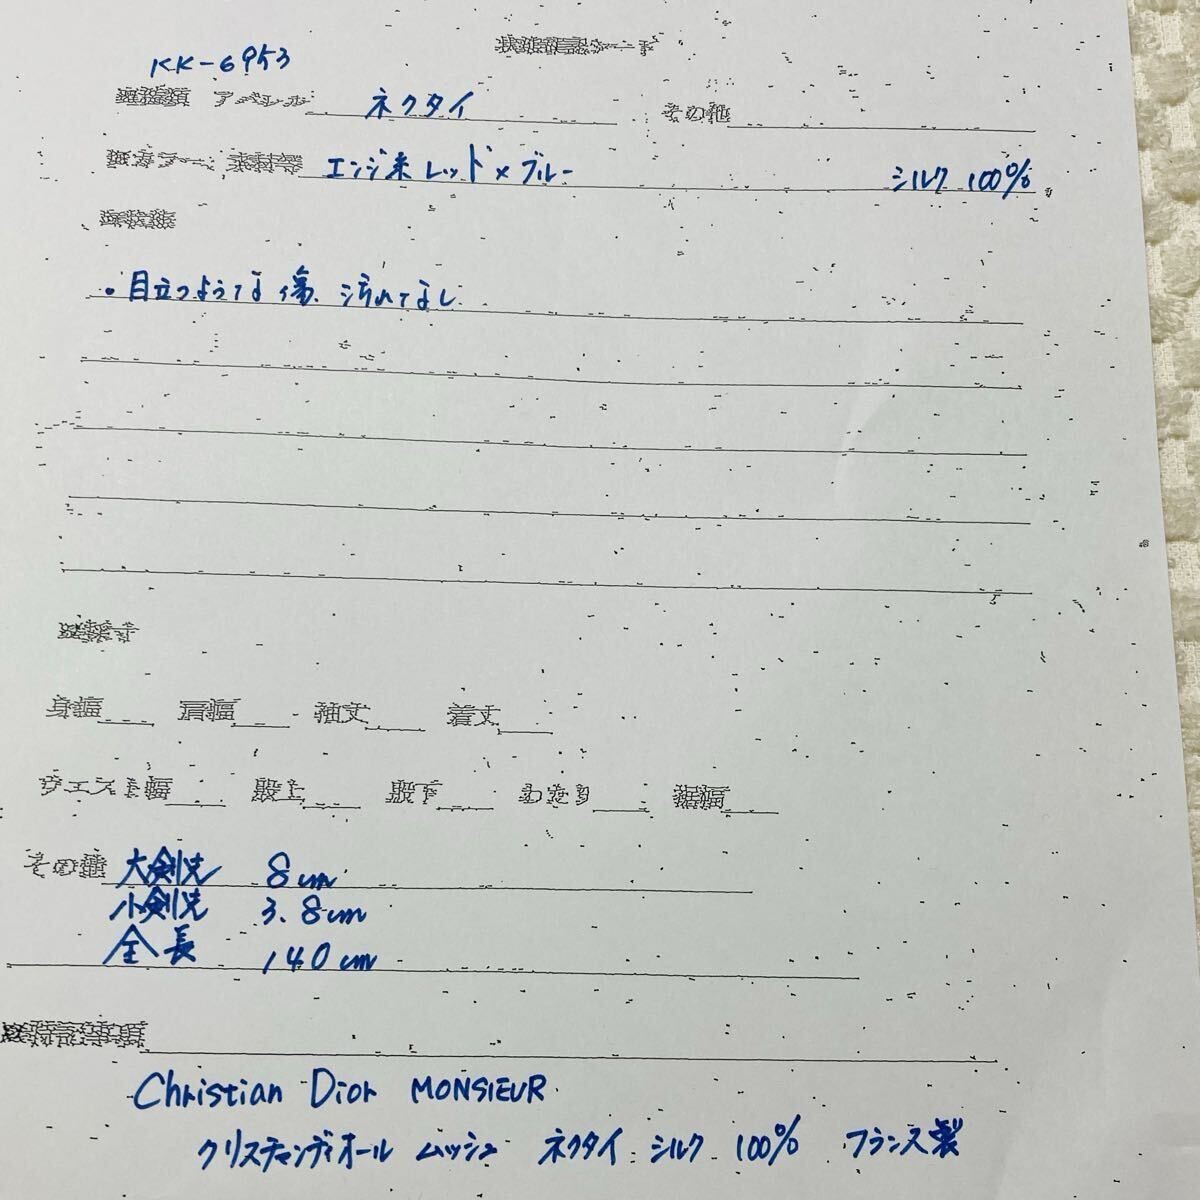 KK-6953
アパレル ネクタイ その他
エンジ系 レッド×ブルー シルク 100%
・目立つような傷、汚れなし
身幅 肩幅 袖丈 着丈
ウエスト幅 股上 股下 わたり 裾幅
その他 大剣先 8cm
小剣先 3.8cm
全長 140cm
Christian Dior MONSIEUR
クリスチャンディオール ムッシュ ネクタイ シルク 100% フランス製